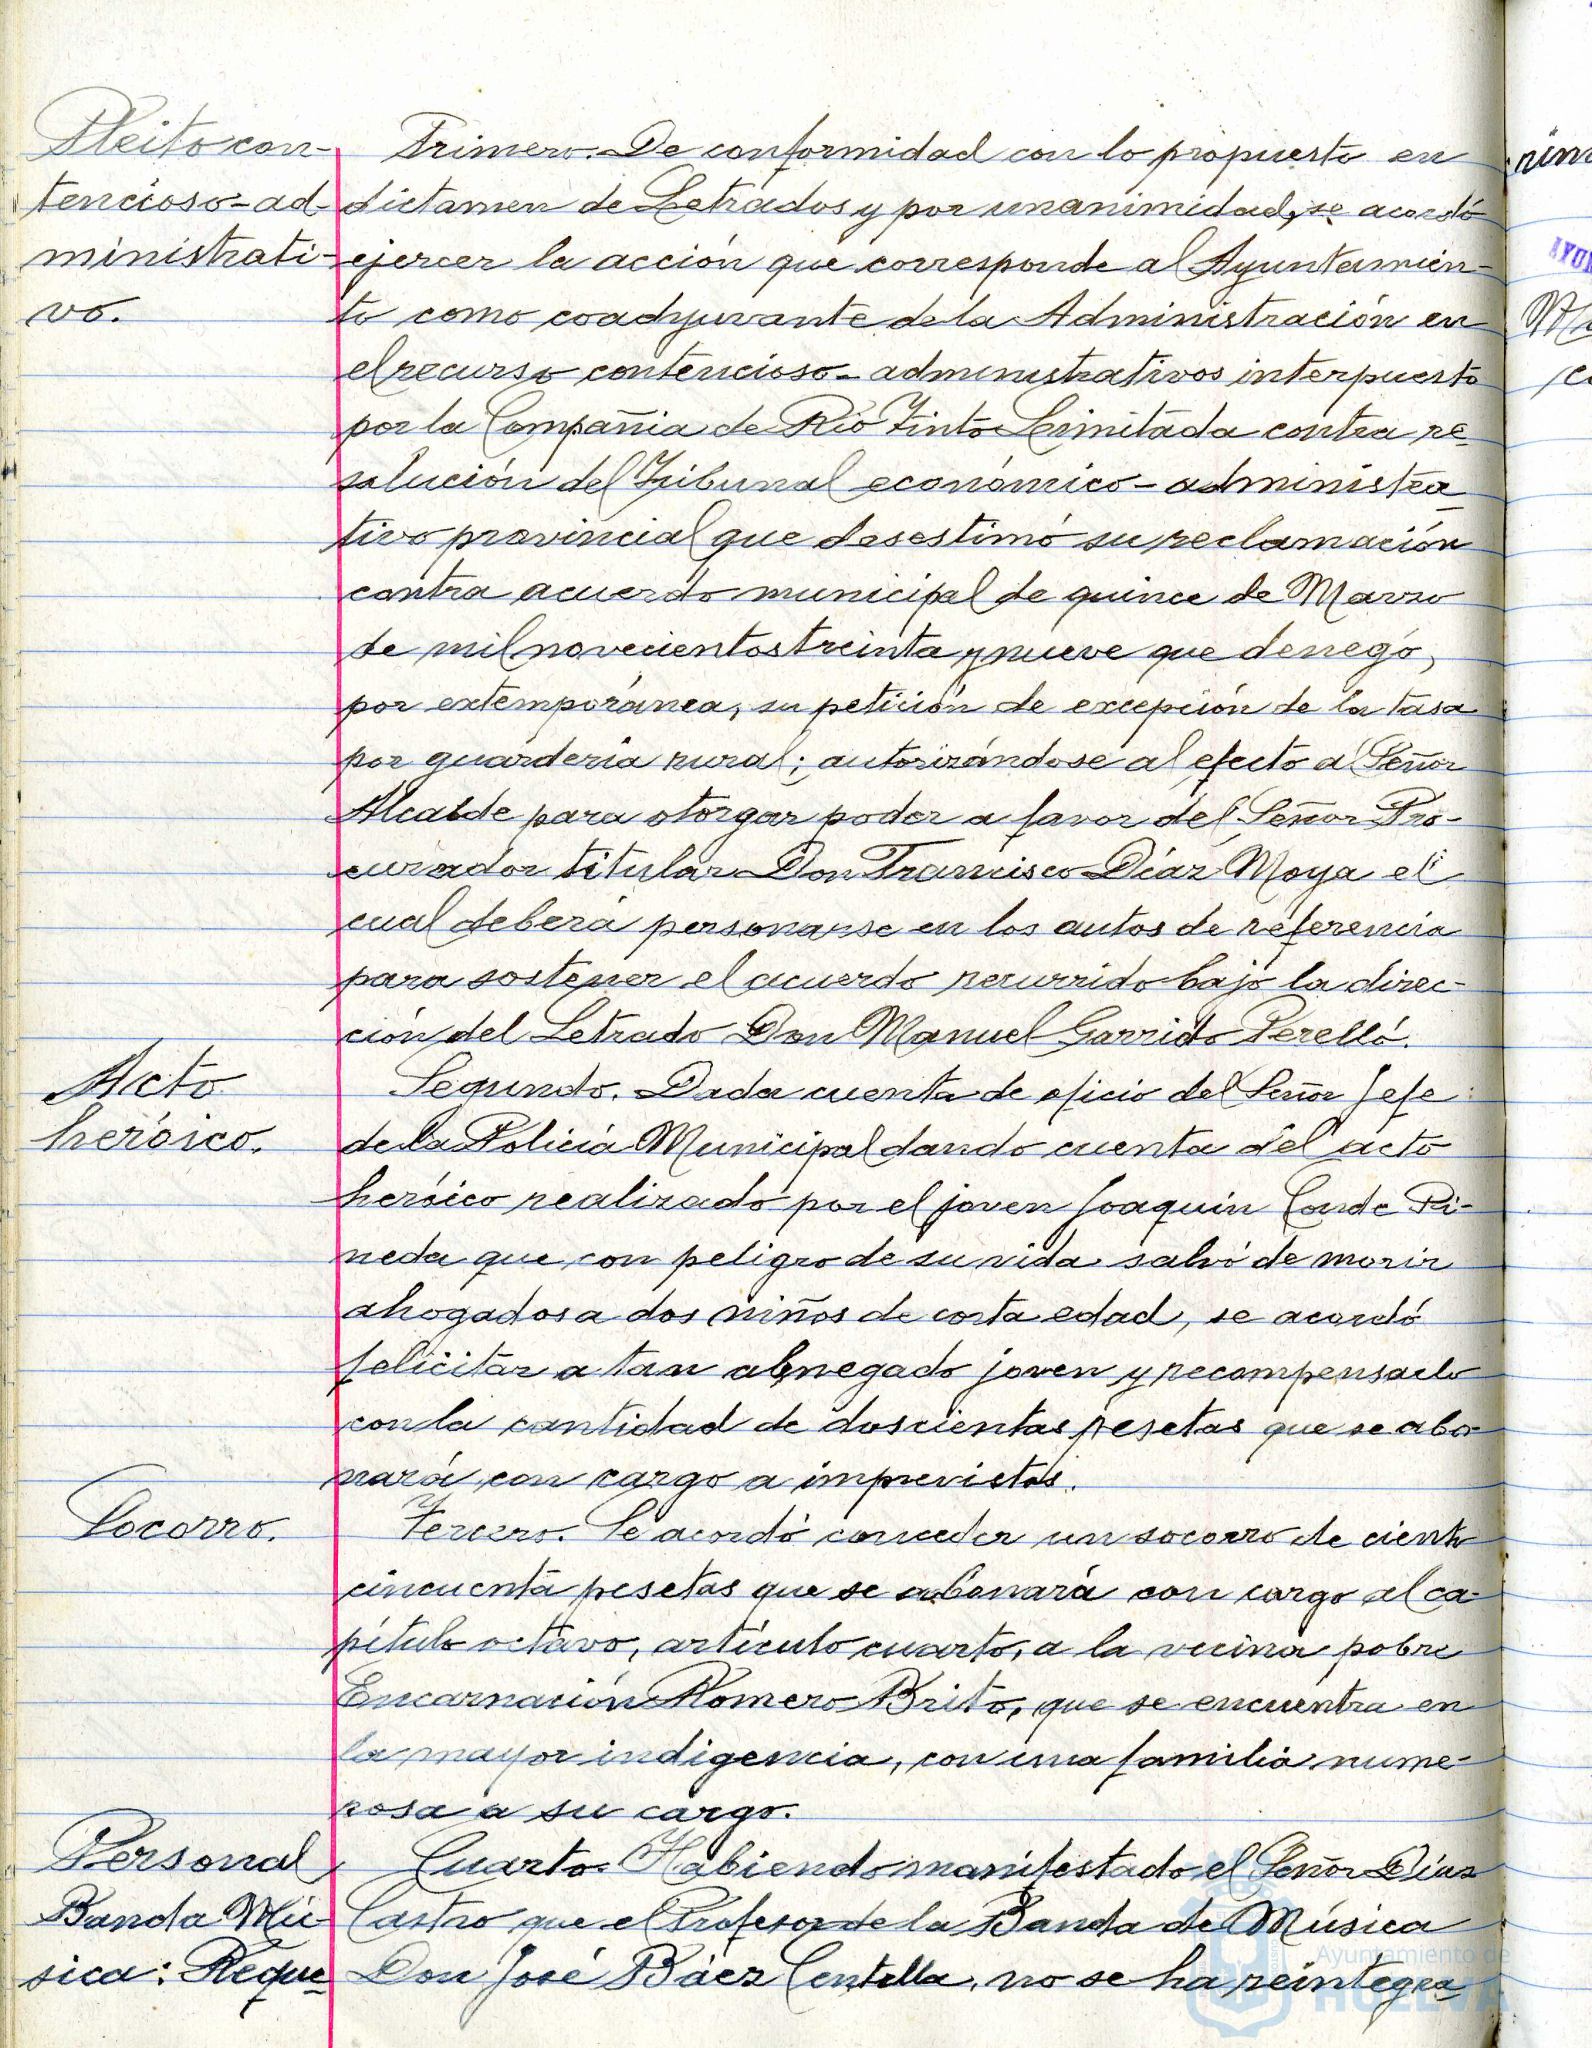 Pleito con-
tencioso-ad-
ministrati-
vo.
Primero. De conformidad con lo propuesto en
dictamen de Letrados y por unanimidad, se acordó
ejercer la acción que corresponde al Ayuntamien-
to como coadyuvante de la Administración en
el recurso contencioso-administrativos interpuesto
por la Compañia de Rio Tinto Limitada contra re-
solución del Tribunal económico-administra-
tivo provincial que desestimó su reclamación
contra acuerdo municipal de quince de Marzo
de mil novecientos treinta y nueve que denegó,
por extemporánea, su petición de excepción de la tasa
por guarderia rural; autorizándose al efecto al Señor
Alcalde para otorgar poder a favor del Señor Pro-
curador titular Don Francisco Díaz Moya el
cual deberá personarse en los autos de referencia
para sostener el acuerdo recurrido bajo la direc-
ción del Letrado Don Manuel Garrido Perelló.
Acto
heróico.
Segundo. Dada cuenta de oficio del Señor Jefe
de la Policía Municipal dando cuenta del acto
heróico realizado por el joven Joaquin Conde Pi-
neda que con peligro de su vida salvó de morir
ahogados a dos niños de corta edad, se acordó
felicitar a tan abnegado joven y recompensarlo
con la cantidad de doscientas pesetas que se abo-
nará con cargo a imprevistos.
Socorro.
Tercero. Se acordó conceder un socorro de ciento
cincuenta pesetas que se abonará con cargo al ca-
pítulo octavo, artículo cuarto, a la vecina pobre
Encarnación Romero Brito, que se encuentra en
la mayor indigencia, con una familia nume-
rosa a su cargo.
Personal
Banda Mú-
sica: Reque-
Cuarto. Habiendo manifestado el Señor Díaz
Castro que el Profesor de la Banda de Música
Don José Báez Centella, no se ha reintegra-
Ayuntamiento de
HUELVA